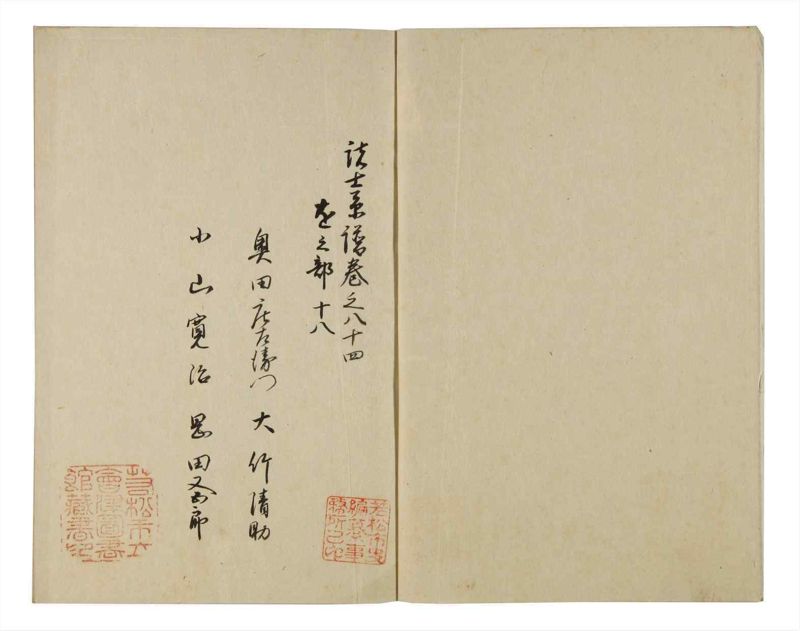 諸士系譜巻之八十四
を之部 十八
奥田庄左衛門 大竹清助
小山寛治 岡田又五郎
若松市史編纂事務所之印
若松市立會津圖書館藏書印